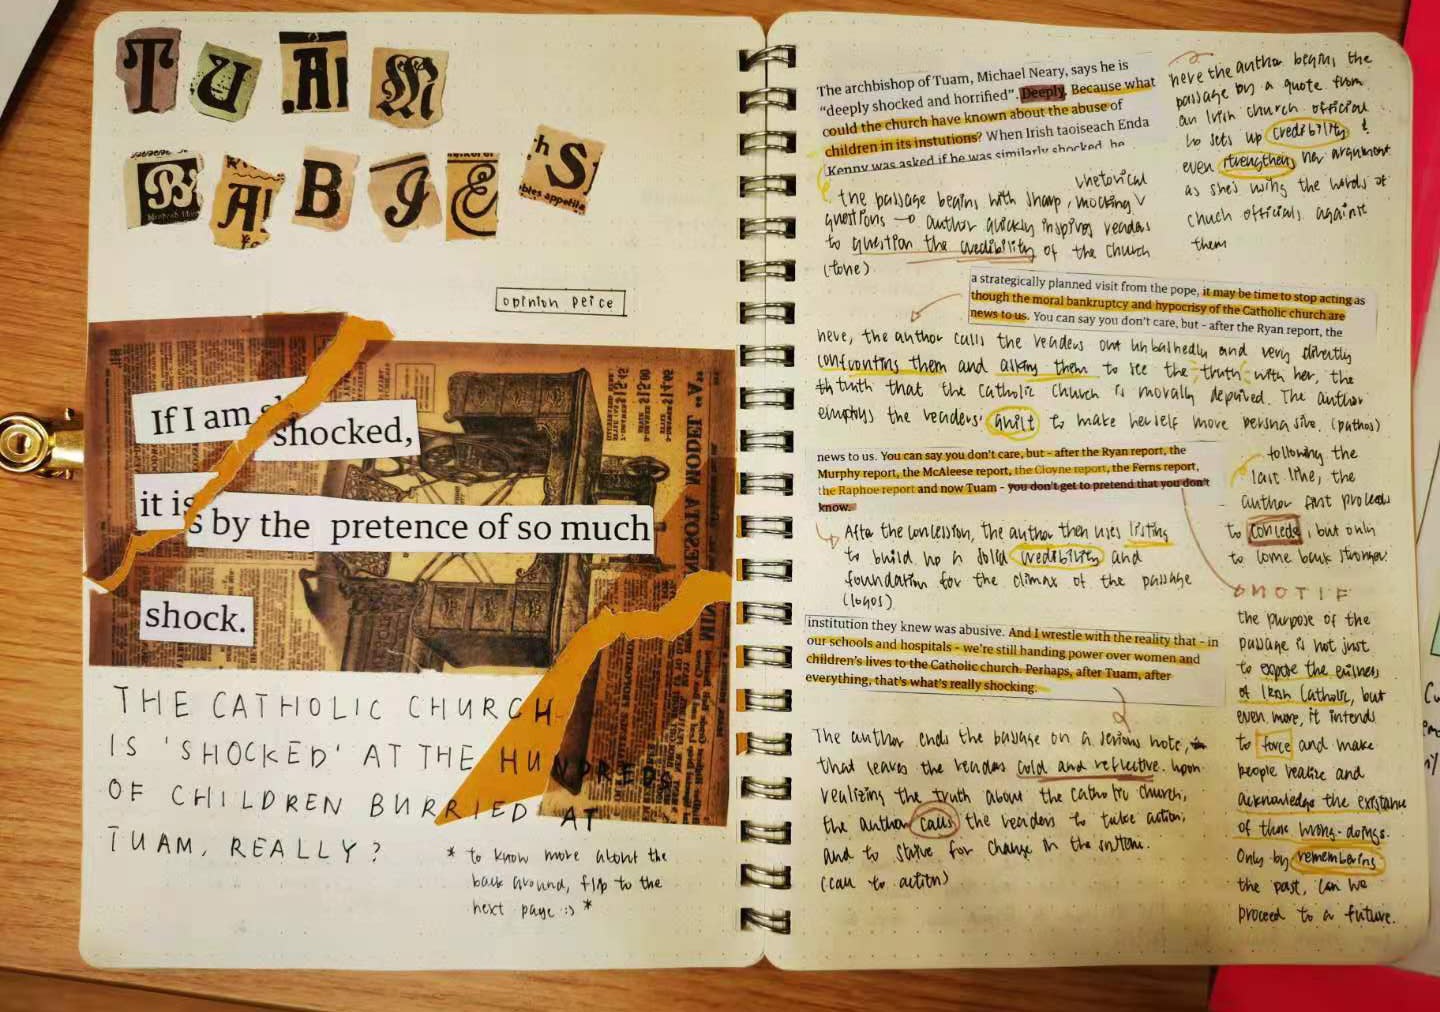 TUAM
BABIES
opinion peice
If I am shocked,
it is by the pretence of so much
shock.
THE CATHOLIC CHURCH
IS 'SHOCKED' AT THE HUNDREDS
OF CHILDREN BURRIED AT
TUAM, REALLY?
* to know more about the
back ground, flip to the
next page :) *
The archbishop of Tuam, Michael Neary, says he is
"deeply shocked and horrified". Deeply. Because what
could the church have known about the abuse of
children in its instutions? When Irish taoiseach Enda
Kenny was asked if he was similarly shocked, he
here the author begins the
passage by a quote from
an Irish church official
to sets up credibility &
even strengthen her argument
as she's using the words of
church officials against
them
the passage begins with sharp, mocking rhetorical
questions → author quickly inspires readers
to question the credibility of the church
(tone)
a strategically planned visit from the pope, it may be time to stop acting as
though the moral bankruptcy and hypocrisy of the Catholic church are
news to us. You can say you don't care, but - after the Ryan report, the
here, the author calls the readers out unbashedly and very directly
confronting them and asking them to see the truth with her, the
truth that the Catholic Church is morally depived. The author
employs the readers' guilt to make herself more persuasive. (pathos)
news to us. You can say you don't care, but - after the Ryan report, the
Murphy report, the McAleese report, the Cloyne report, the Ferns report,
the Raphoe report and now Tuam - you don't get to pretend that you don't
know.
following the
last line, the
author first proceeds
to concede, but only
to come back stronger.
After the concession, the author then uses listing
to build up a solid credibility and
foundation for the climax of the passage
(logos)
MOTIF
the purpose of the
passage is not just
to expose the
of Irish Catholic, but
even more, it intends
to force and make
people realize and
acknowledge the existance
of these wrong-doings.
Only by remembering
the past, can we
proceed to a future.
institution they knew was abusive. And I wrestle with the reality that - in
our schools and hospitals - we're still handing power over women and
children's lives to the Catholic church. Perhaps, after Tuam, after
everything, that's what's really shocking.
The author ends the passage on a serious note,
that leaves the readers cold and reflective. Upon
realizing the truth about the catholic church,
the author calls the readers to take action;
and to strive for change in the system.
(call to action)